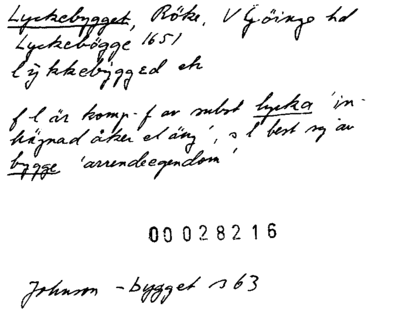 Lyckebygget, Röke, V Göinge hd
Lyckebögge 1651
lykkebygged ek
f l är komp.f av subst lycka 'in-
hägnad åker el äng', s l best sg av
bygge 'arrendeegendom'
00028216
Johnson -bygget s 63